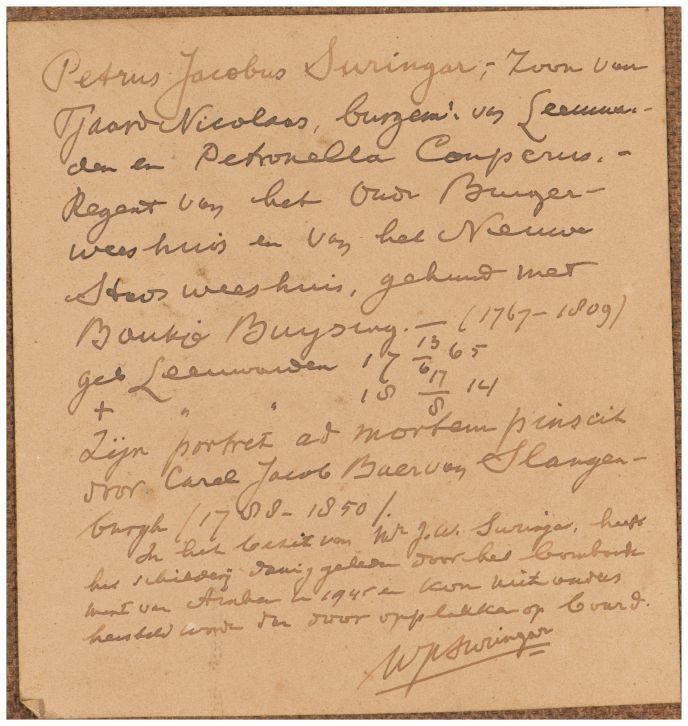 Petrus Jacobus Suringar,- Zoon van
Tjaard Nicolaas, burgemr. van Leeuwar-
den en Petronella Couperus.-
Regent van het Oude Burger-
weeshuis en van het Nieuwe
Stads weeshuis, gehuwd met
Boukje Buysing. — (1767-1809)
geb Leeuwarden 17 13/6 65
+ " " 18 17/8 14
Zijn portret ad mortem pinscit
door Carel Jacob Baer van Slangen-
burgh (1788-1850).
In het bezit van Mr J.W. Suringar, heeft
het schilderij danig geleden door het bombarde
ment van Arnhem in 1945 en kon niet anders
hersteld worden dan door opplakken op board.
WPSuringar